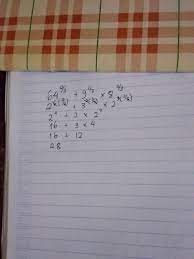 64^(2/3) + 9^(1/2) × 8^(2/3)
2^(6(2/3)) + 3^(2(1/2)) × 2^(3(2/3))
2^4 + 3 × 2^2
16 + 3 × 4
16 + 12
28